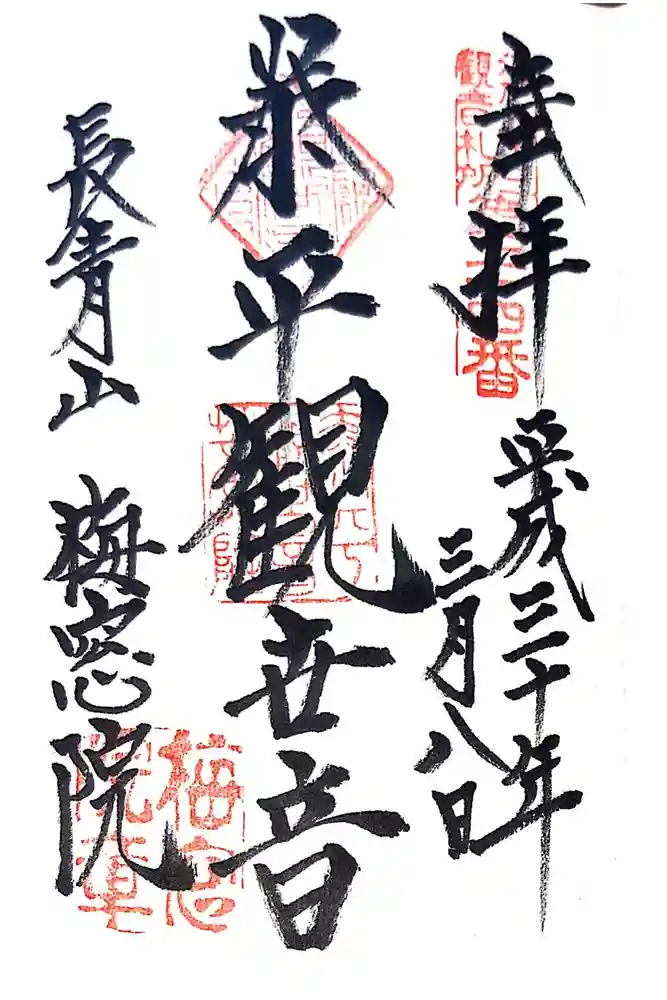 奉拝
平成三十年
三月八日
観音札所第二十四番
泰平観世音
長青山
梅窓院
梅窓
院章